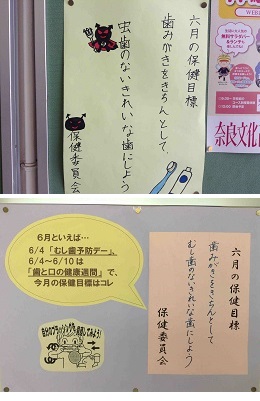 六月の保健目標
歯みがきをきちんとして、
虫歯のないきれいな歯にしよう
保健委員会
無料サライバー
奈良文化
6月といえば…
6/4「むし歯予防デー」、
6/4～6/10は
「歯と口の健康週間」で、
今月の保健目標はコレ
自分のブラッシングを見直してみよう!
六月の保健目標
歯みがきをきちんとして
むし歯のないきれいな歯にしよう
保健委員会